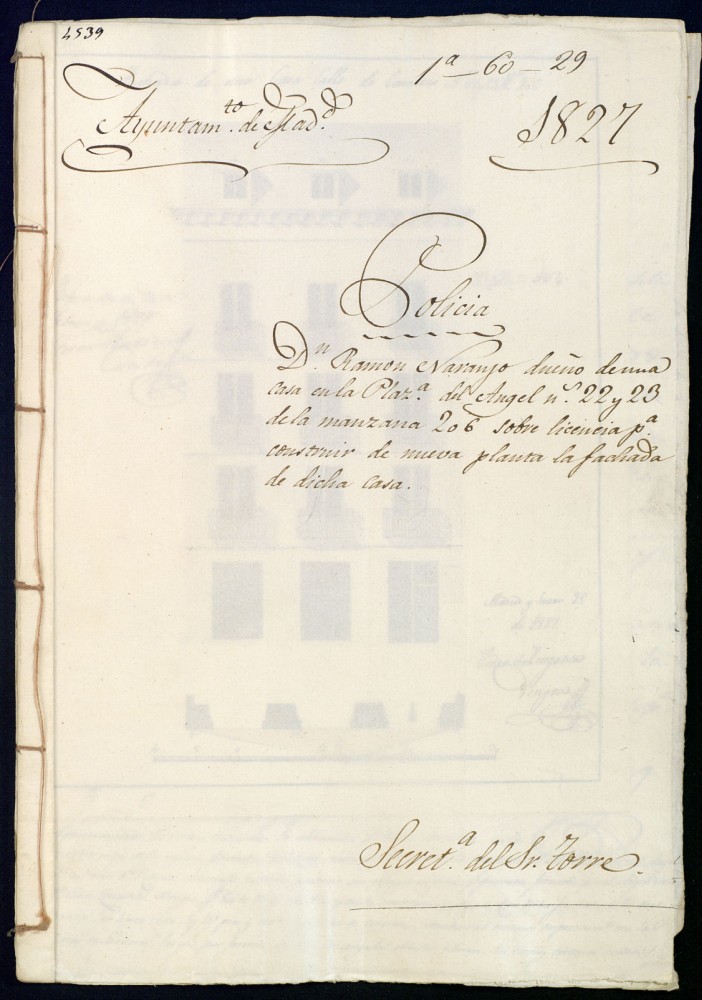 4539
1ª - 60 - 29
Ayuntamto. de Madd.
1827
Policia
Dn. Ramon Naranjo dueño de una
casa en la Plaza. del Angel ns. 22 y 23
de la manzana 206 sobre licencia pa.
construir de nueva planta la fachada
de dicha casa.
Secreta. del Sr. Torre.